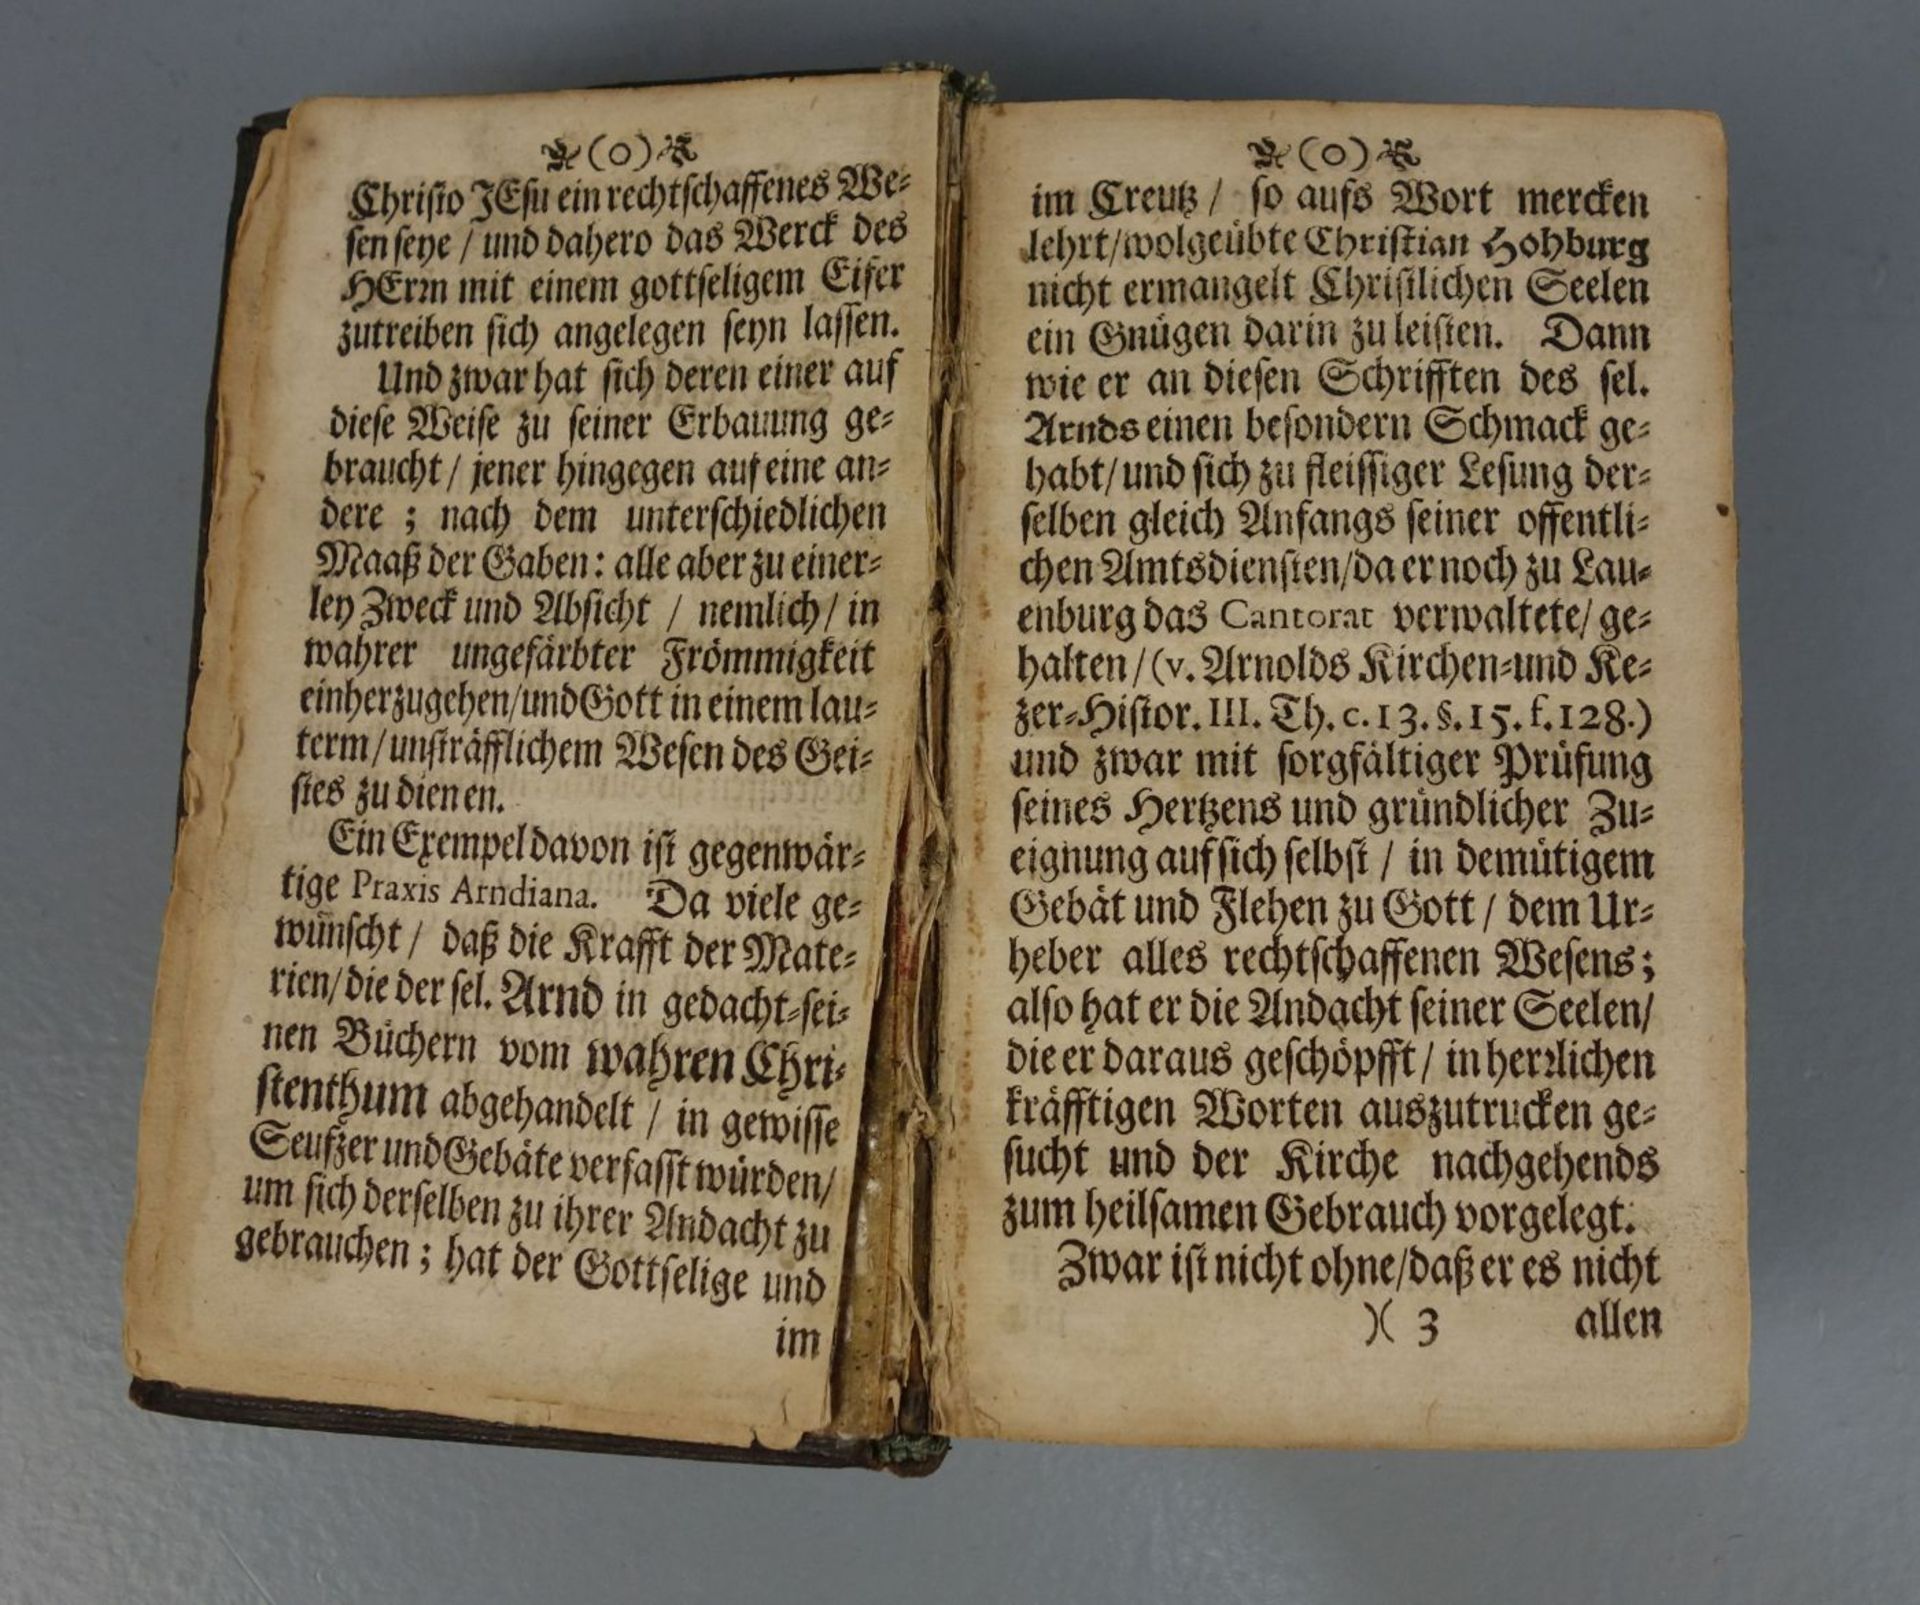 (o)
Christo JEsu ein rechtschaffenes We-
sen seye / und dahero das Werck des
HErrn mit einem gottseligem Eifer
zutreiben sich angelegen seyn lassen.
Und zwar hat sich deren einer auf
diese Weise zu seiner Erbauung ge-
braucht / jener hingegen auf eine an-
dere ; nach dem unterschiedlichen
Maaß der Gaben: alle aber zu einer-
ley Zweck und Absicht / nemlich / in
wahrer ungefärbter Frömmigkeit
einherzugehen/und Gott in einem lau-
term/unsträfflichem Wesen des Gei-
stes zu dienen.
Ein Exempel davon ist gegenwär-
tige Praxis Arndiana. Da viele ge-
wünscht / daß die Krafft der Mate-
rien/die der sel. Arnd in gedacht-sei-
nen Büchern vom wahren Chri-
stenthum abgehandelt / in gewisse
Seufzer und Gebäte verfasst würden/
um sich derselben zu ihrer Andacht zu
gebrauchen ; hat der Gottselige und
im
(o)
im Creutz / so aufs Wort mercken
lehrt/wolgeübte Christian Hohburg
nicht ermangelt Christlichen Seelen
ein Gnügen darin zu leisten. Dann
wie er an diesen Schrifften des sel.
Arnds einen besondern Schmack ge-
habt/und sich zu fleissiger Lesung der-
selben gleich Anfangs seiner offentli-
chen Amtsdiensten/da er noch zu Lau-
enburg das Cantorat verwaltete/ ge-
halten/(v. Arnolds Kirchen-und Ke-
zer-Histor. III. Th. c. 13. §. 15. f. 128.)
und zwar mit sorgfältiger Prüfung
seines Hertzens und gründlicher Zu-
eignung auf sich selbst / in demütigem
Gebät und Flehen zu Gott / dem Ur-
heber alles rechtschaffenen Wesens;
also hat er die Andacht seiner Seelen/
die er daraus geschöpfft / in herrlichen
kräfftigen Worten auszutrucken ge-
sucht und der Kirche nachgehends
zum heilsamen Gebrauch vorgelegt.
Zwar ist nicht ohne/daß er es nicht
)( 3 allen